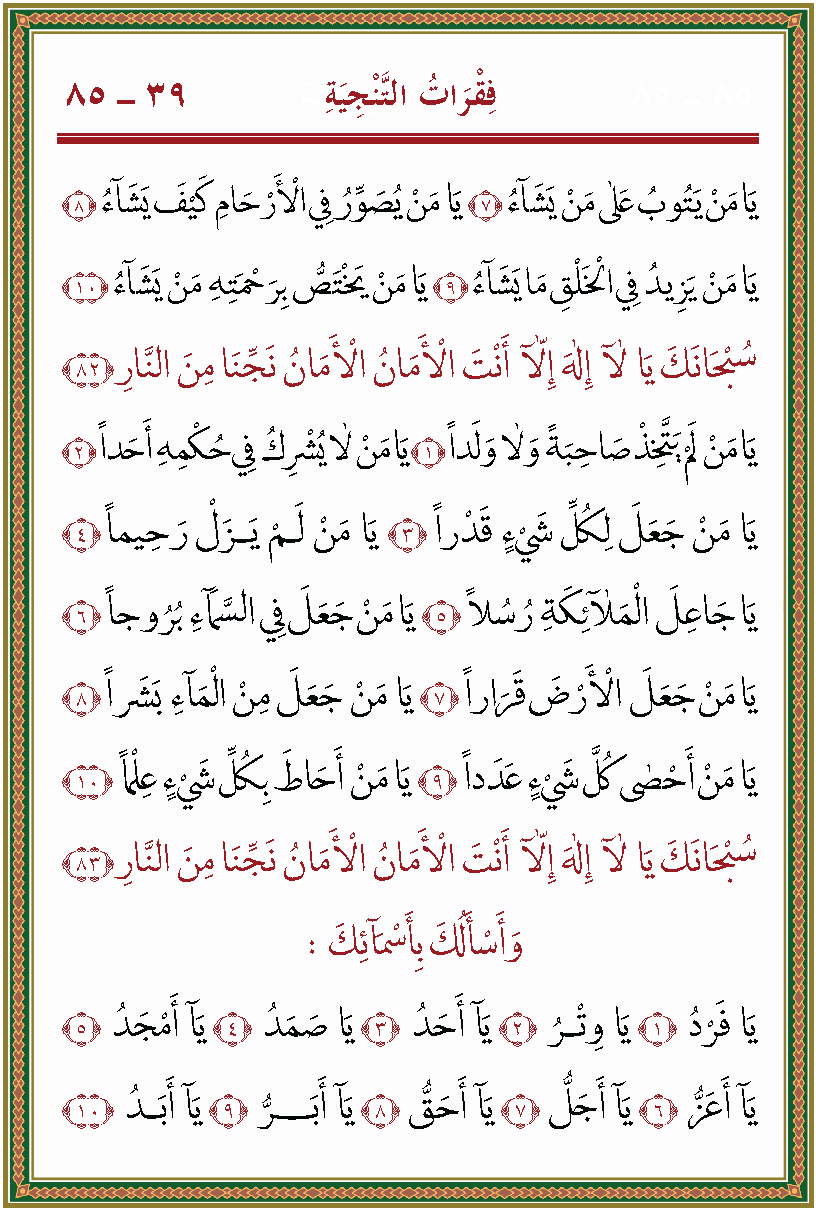 فِقْرَاتُ التَّنْجِيَةِ ٣٩ ــ ٨٥
يَا مَنْ يَتُوبُ عَلٰى مَنْ يَشَآءُ ﴿٧﴾ يَا مَنْ يُصَوِّرُ فِي الْأَرْحَامِ كَيْفَ يَشَآءُ ﴿٨﴾
يَا مَنْ يَزِيدُ فِي الْخَلْقِ مَا يَشَآءُ ﴿٩﴾ يَا مَنْ يَخْتَصُّ بِرَحْمَتِهِ مَنْ يَشَآءُ ﴿١٠﴾
سُبْحَانَكَ يَا لَآ إِلٰهَ إِلَّآ أَنْتَ الْأَمَانُ الْأَمَانُ نَجِّنَا مِنَ النَّارِ ﴿٨٢﴾
يَا مَنْ لَمْ يَتَّخِذْ صَاحِبَةً وَلَا وَلَداً ﴿١﴾ يَا مَنْ لَا يُشْرِكُ فِي حُكْمِهِ أَحَداً ﴿٢﴾
يَا مَنْ جَعَلَ لِكُلِّ شَيْءٍ قَدْراً ﴿٣﴾ يَا مَنْ لَـمْ يَـزَلْ رَحِيماً ﴿٤﴾
يَا جَاعِلَ الْمَلَآئِكَةِ رُسُلاً ﴿٥﴾ يَا مَنْ جَعَلَ فِي السَّمَآءِ بُرُوجاً ﴿٦﴾
يَا مَنْ جَعَلَ الْأَرْضَ قَرَاراً ﴿٧﴾ يَا مَنْ جَعَلَ مِنْ الْمَآءِ بَشَراً ﴿٨﴾
يَا مَنْ أَحْصٰى كُلَّ شَيْءٍ عَدَداً ﴿٩﴾ يَا مَنْ أَحَاطَ بِكُلِّ شَيْءٍ عِلْماً ﴿١٠﴾
سُبْحَانَكَ يَا لَآ إِلٰهَ إِلَّآ أَنْتَ الْأَمَانُ الْأَمَانُ نَجِّنَا مِنَ النَّارِ ﴿٨٣﴾
وَأَسْأَلُكَ بِأَسْمَآئِكَ :
يَا فَرْدُ ﴿١﴾ يَا وِتْـرُ ﴿٢﴾ يَآ أَحَدُ ﴿٣﴾ يَا صَمَدُ ﴿٤﴾ يَآ أَمْجَدُ ﴿٥﴾
يَآ أَعَزُّ ﴿٦﴾ يَآ أَجَلُّ ﴿٧﴾ يَآ أَحَقُّ ﴿٨﴾ يَآ أَبَـــرُّ ﴿٩﴾ يَآ أَبَـدُ ﴿١٠﴾